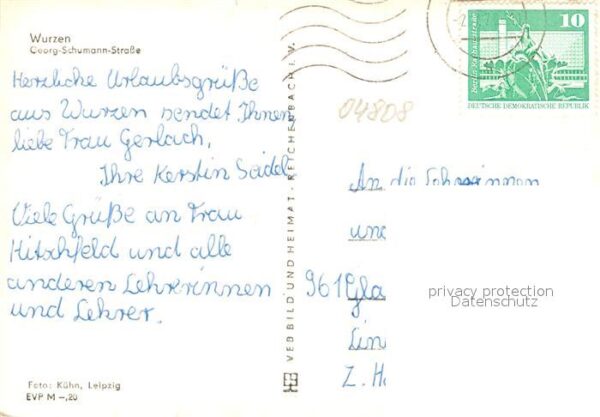 Wurzen
Georg-Schumann-Straße
Herzliche Urlaubsgrüße
aus Wurzen sendet Ihnen
liebe Frau Gerlach,
Ihre Kerstin Seidel
Viele Grüße an Frau
Hitschfeld und alle
anderen Lehrerinnen
und Lehrer.
Foto: Kühn, Leipzig
EVP M -,20
VEB BILD UND HEIMAT · REICHENBACH I. V.
04808
10
DEUTSCHE DEMOKRATISCHE REPUBLIK
An die
und
961 Gla
Z. H
privacy protection
Datenschutz